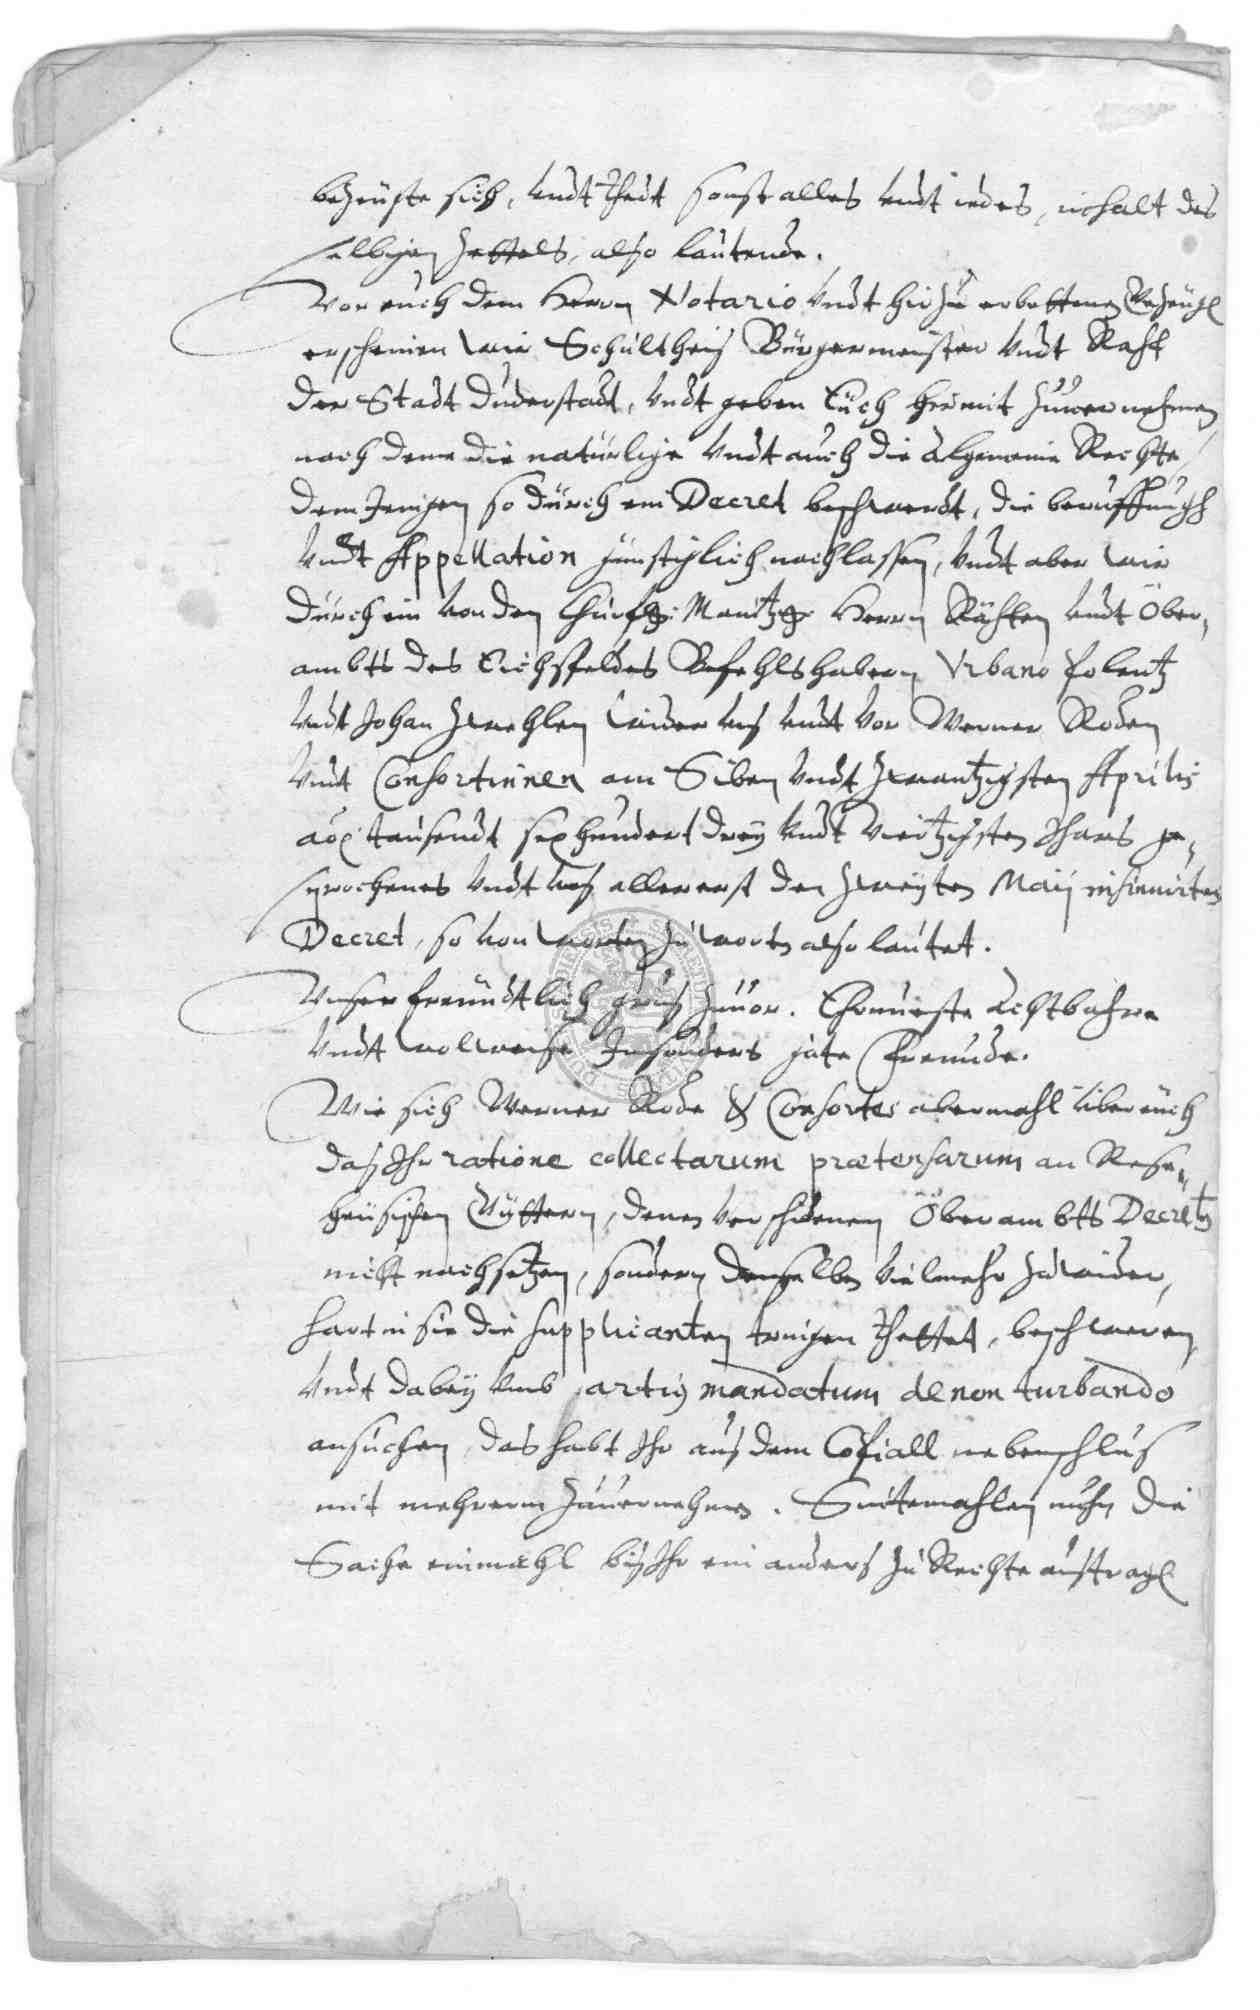 bezeugte sich, vndt thedt sonst alles vndt iedes, inhalt des
selbigen Zettels, also lautende.
Vor euch dem Herrn Notario vndt hirzu erbettenen Gezeugen
erscheinen wir Schultheis Bürgermeister vndt Raht
der Stadt Duderstadt, vndt geben Euch hiermit zuuernehmen
nach deme die naturlige vndt auch die Algemeine Rechte
demjenigen so durch ein Decret beschwerdt, die beruffungh
vndt Appellation günstiglich nachlassen, vndt aber wir
durch ein von den Churfg: Maintzg: Herrn Rähten vndt Ober,
ambts des Eichsfeldes Befehlshabern Vrbano Polentz
vndt Johan Zwehlen wider vns vndt vor Werner Roden
vndt Consortinnen am Siben vndt zwantzigsten Aprilis
tausendt sexhundert drey vndt viertzigsten Jhars ge,
sprochenes vndt vns allererst den zweyten Maij insinuirtes
Decret, so von worten zu worten also lautet.
Vnser freundtlich grus zuuor. Ehrnueste Achtbahre
vndt wolweise Insonders gute Freunde.
Wie sich Werner Rode & Consortes abermahl über euch
das Ihr ratione collectarum prætensarum an Rese,
heusischen Güttern, denen verschidenen Oberambtts Decretis
nicht nachsetzen, sondern denselben vielmehr zuwider,
hart in sie die supplicanten tringen thettet, beschweren,
vndt dabey vmb artius mandatum de non turbando
ansuchen, das habt Ihr aus dem Copiall nebenschlus
mit mehrerm zuuernehmen. Seitemahlen nuhn die
Sache einmahl bis Ihr ein anders zu Rechte austragl